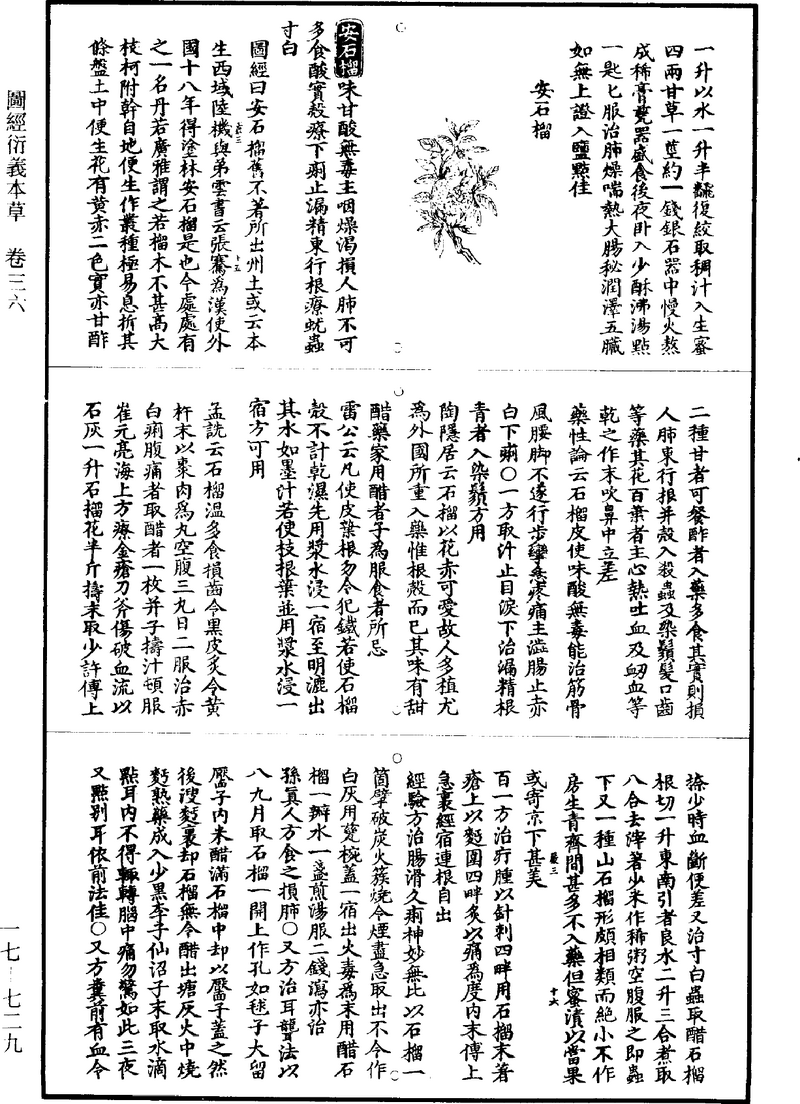 圖經衍義本草　卷三六
一升以水一升半翻復絞取稠汁入生蜜
四兩甘草一莖約一錢銀石器中慢火熬
成稀膏甆器盛食後夜卧入少酥沸湯點
一匙匕服治肺燥喘熱大腸秘潤澤五臟
如無上證入鹽點佳
安石榴
安石榴味甘酸無毒主咽燥渴損人肺不可
多食酸實殼療下痢止漏精東行根療蚘蟲
寸白
圖經曰安石榴舊不著所出州土或云本
生西域陸機與弟雲書云張騫為漢使外
國十八年得塗林安石榴是也今處處有
之一名丹若廣雅謂之若榴木不甚高大
枝柯附幹自地便生作叢種極易息折其
條盤土中便生花有黄赤二色實亦甘酢
二種甘者可餐酢者入藥多食其實則損
人肺東行根并殼入殺蟲及染鬚髮口齒
等藥其花百葉者主心熱吐血及衂血等
乾之作末吹鼻中立差
藥性論云石榴皮使味酸無毒能治筋骨
風腰脚不遂行步攣急疼痛主澀腸止赤
白下痢○一方取汁止目淚下治漏精根
青者入染鬚方用
陶隱居云石榴以花赤可愛故人多植尤
為外國所重入藥惟根殼而已其味有甜
醋藥家用醋者子為服食者所忌
雷公云凡使皮葉根勿令犯鐵若使石榴
殼不計乾濕先用漿水浸一宿至明漉出
其水如墨汁若使枝根葉並用漿水浸一
宿方可用
孟詵云石榴溫多食損齒令黑皮炙令黄
杵末以棗肉為丸空腹三丸日二服治赤
白痢腹痛者取醋者一枚并子擣汁頓服
崔元亮海上方療金瘡刀斧傷破血流以
石灰一升石榴花半斤擣末取少許傅上
捺少時血斷便差又治寸白蟲取醋石榴
根切一升東南引者良水二升三合煮取
八合去滓著少米作稀粥空腹服之即蟲
下又一種山石榴形頗相類而絶小不作
房生青齊間甚多不入藥但蜜漬以當果
或寄京下甚美
百一方治疔腫以針刺四畔用石榴末著
瘡上以麪圍四畔炙以痛為度内末傅上
急裹經宿連根自出
經驗方治腸滑久痢神妙無比以石榴一
箇擘破炭火簇燒令煙盡急取出不令作
白灰用甆椀蓋一宿出火毒為末用醋石
榴一瓣水一盞煎湯服二錢瀉亦治
孫真人方食之損肺○又方治耳聾法以
八九月取石榴一開上作孔如毬子大留
靨子内米醋滿石榴中却以靨子蓋之然
後溲麪裹却石榴無令醋出塘灰火中燒
麪熟藥成入少黑李子仙沼子末取水滴
點耳内不得輒轉腦中痛勿驚如此三夜
又點别耳依前法佳○又方糞前有血令
一七—七二九